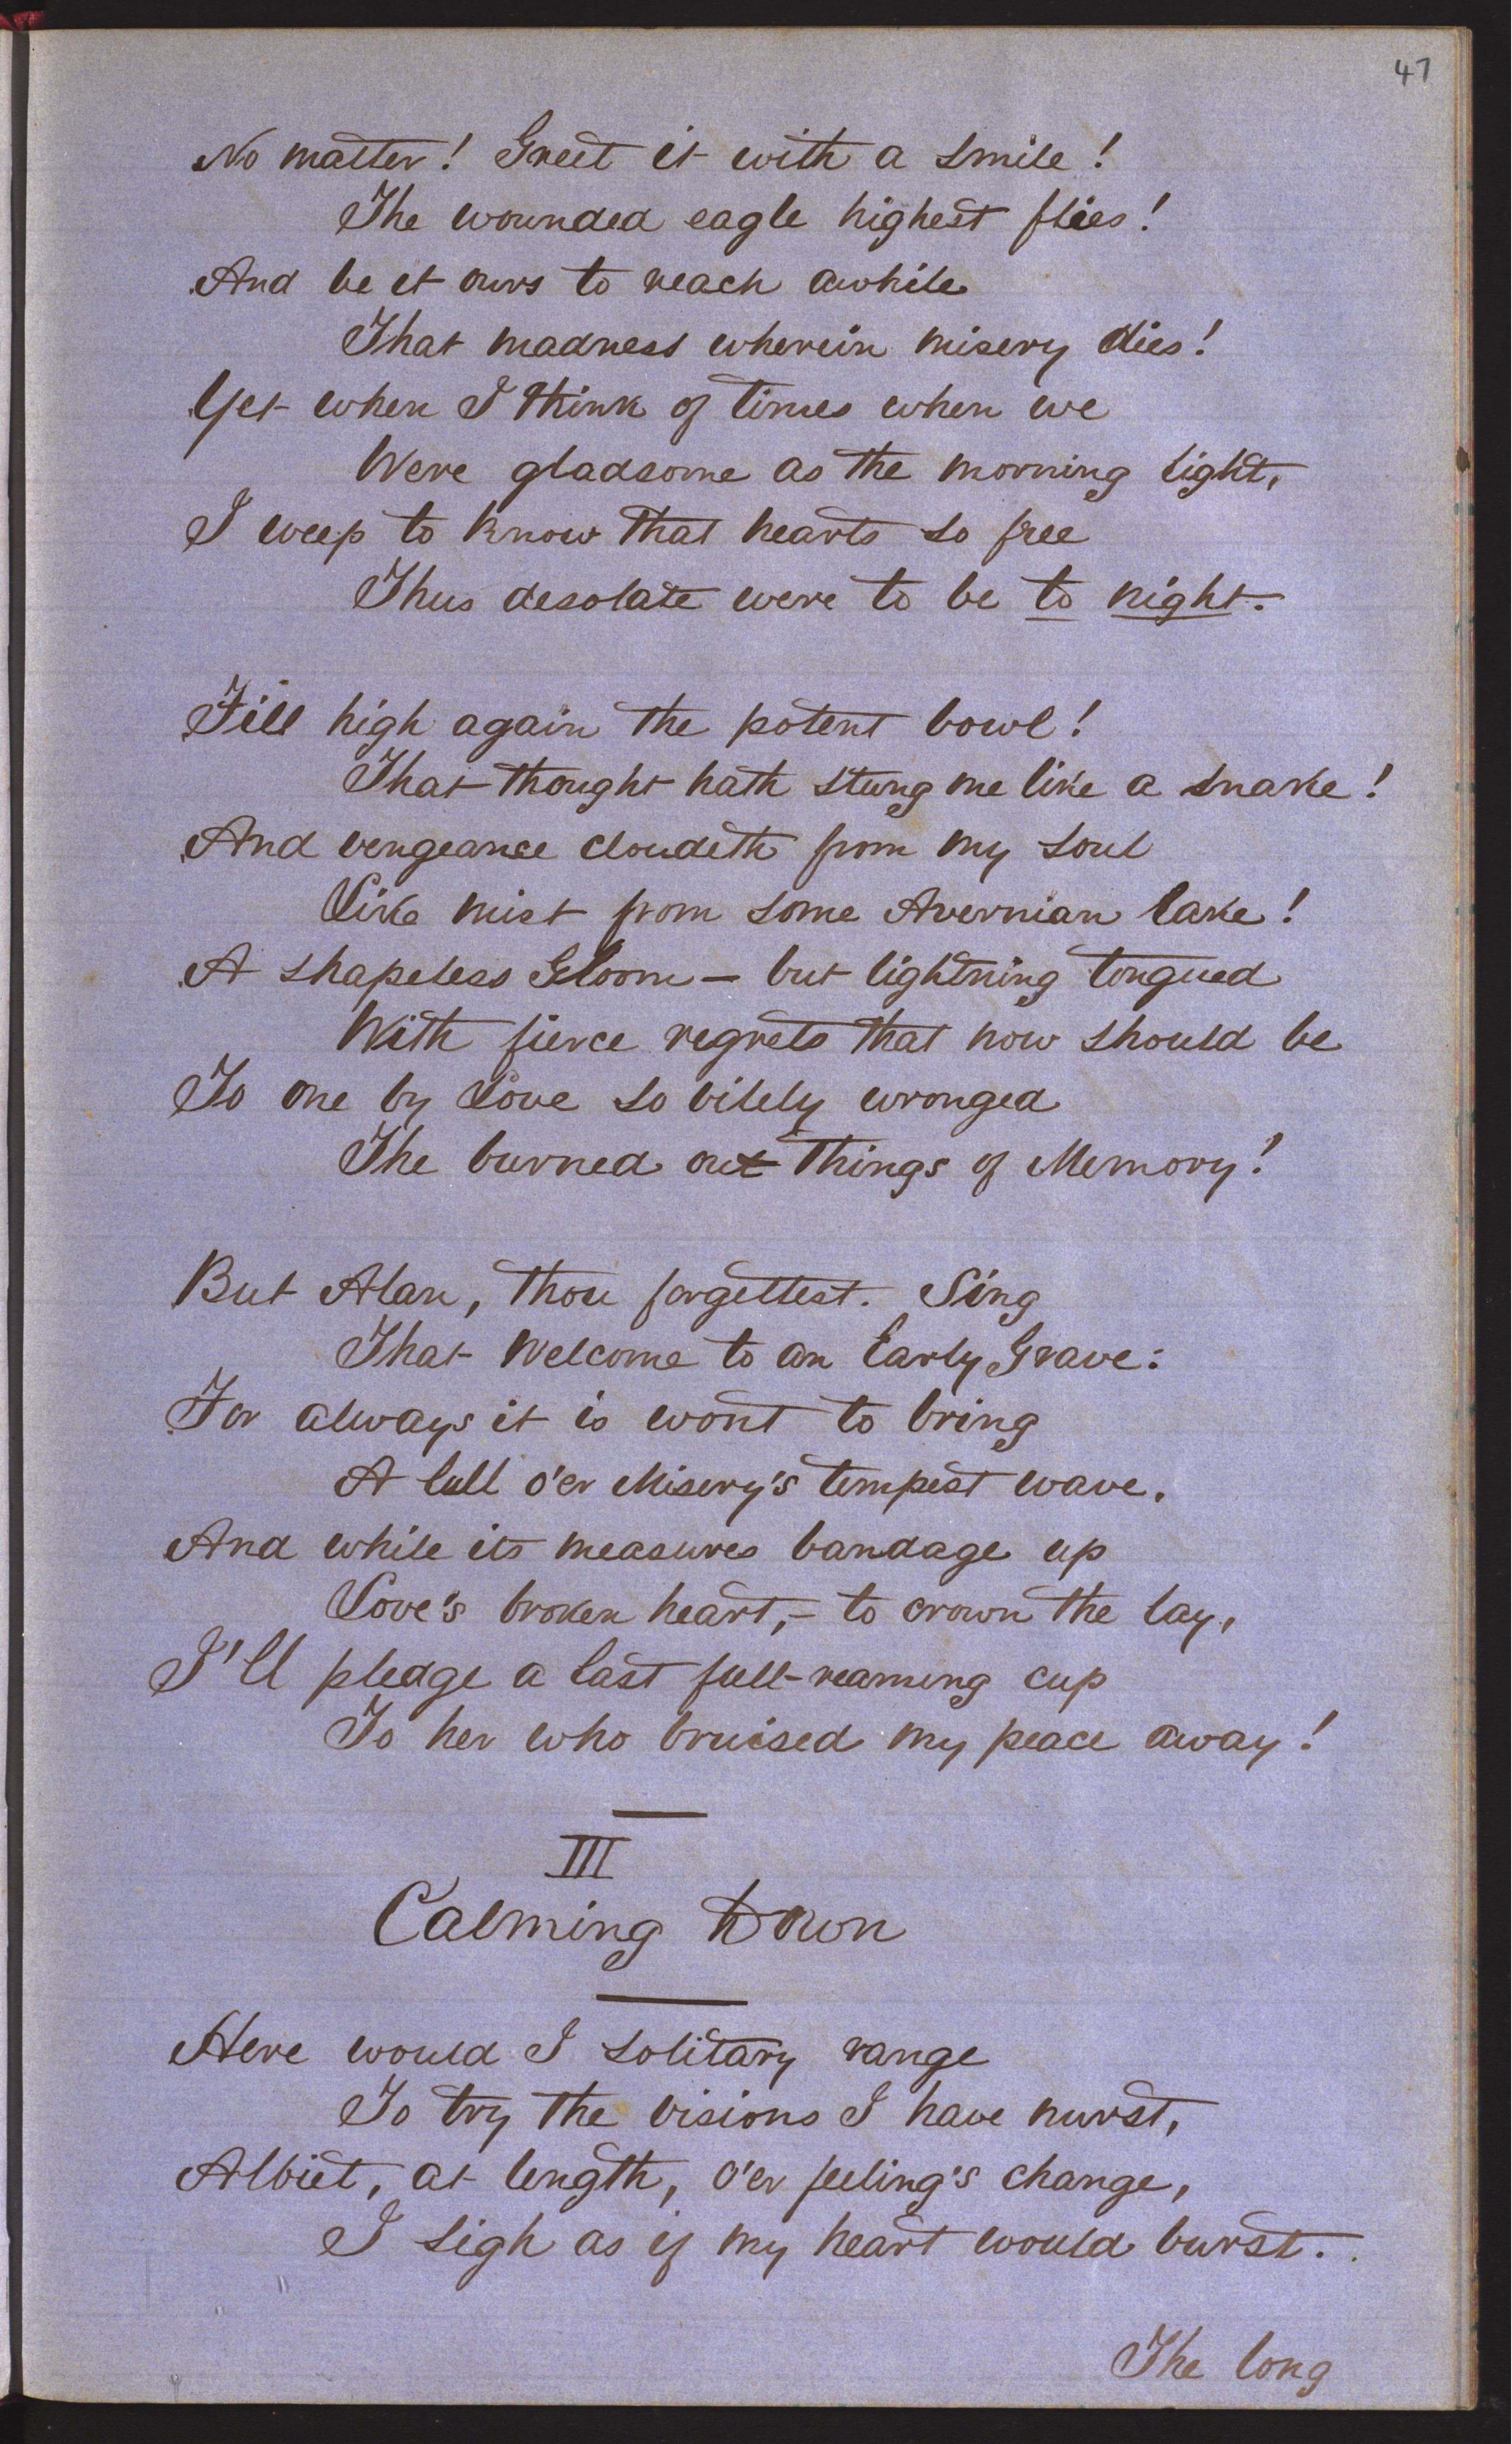 47
No matter! Greet it with a smile!
The wounded eagle highest flies!
And be it ours to reach awhile
That madness wherein misery dies!
Yet when I think of times when we
Were gladsome as the morning light,
I weep to know that hearts so free
Thus desolate were to be to night.
Fill high again the potent bowl!
That thought hath stung me like a snake!
And vengeance cloudeth from my soul
Like mist from some Avernian lake!
A shapeless Gloom — but lightning tongued
With fierce regrets that now should be
To one by Love so vilely wronged
The burned out things of Memory!
But Alan, thou forgettest. Sing
That Welcome to an Early Grave:
For always it is wont to bring
A lull o'er Misery's tempest wave.
And while its measures bandage up
Love's broken heart, – to crown the lay,
I'll pledge a last full-reaming cup
To her who bruised my peace away!
III
Calming Down
Here would I solitary range
To try the visions I have nurst,
Albiet, at length, o'er feeling's change,
I sigh as if my heart would burst.
The long